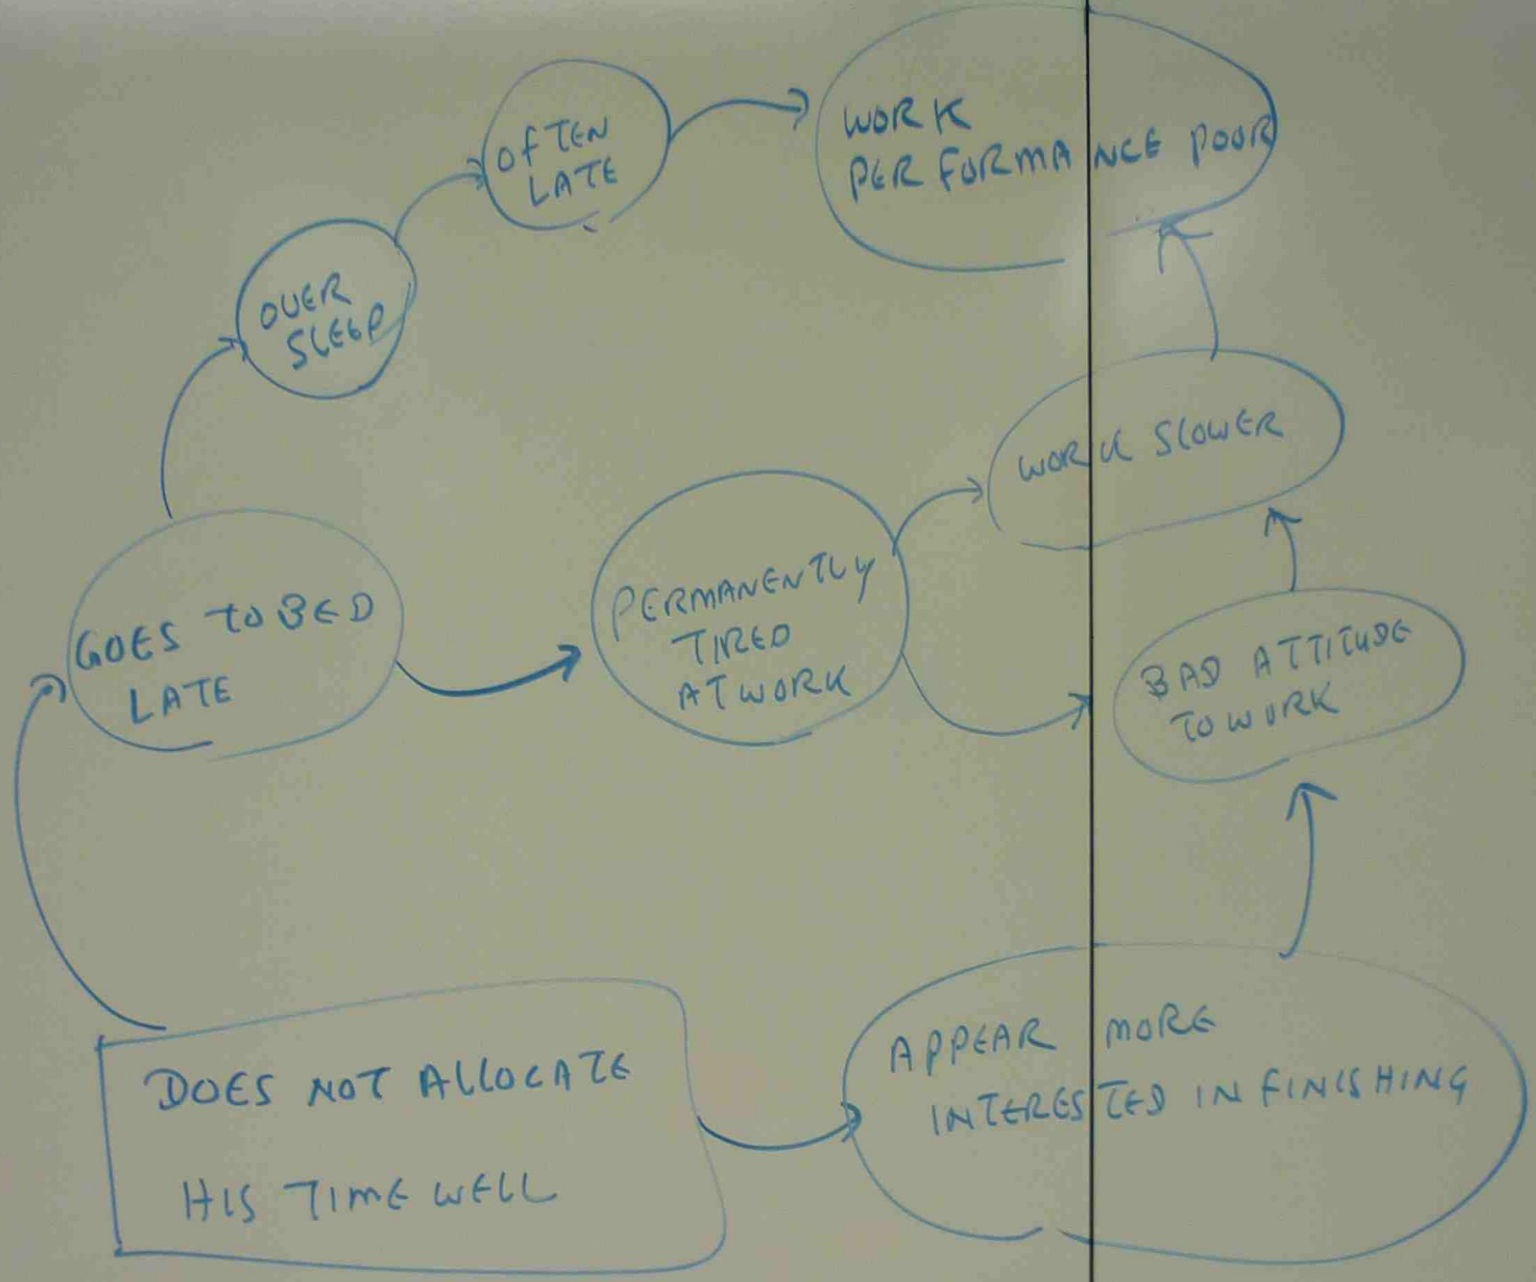 OFTEN
LATE
WORK
PERFORMANCE POOR
OVER
SLEEP
WORK SLOWER
GOES TO BED
LATE
PERMANENTLY
TIRED
AT WORK
BAD ATTITUDE
TO WORK
DOES NOT ALLOCATE
HIS TIME WELL
APPEAR MORE
INTERESTED IN FINISHING